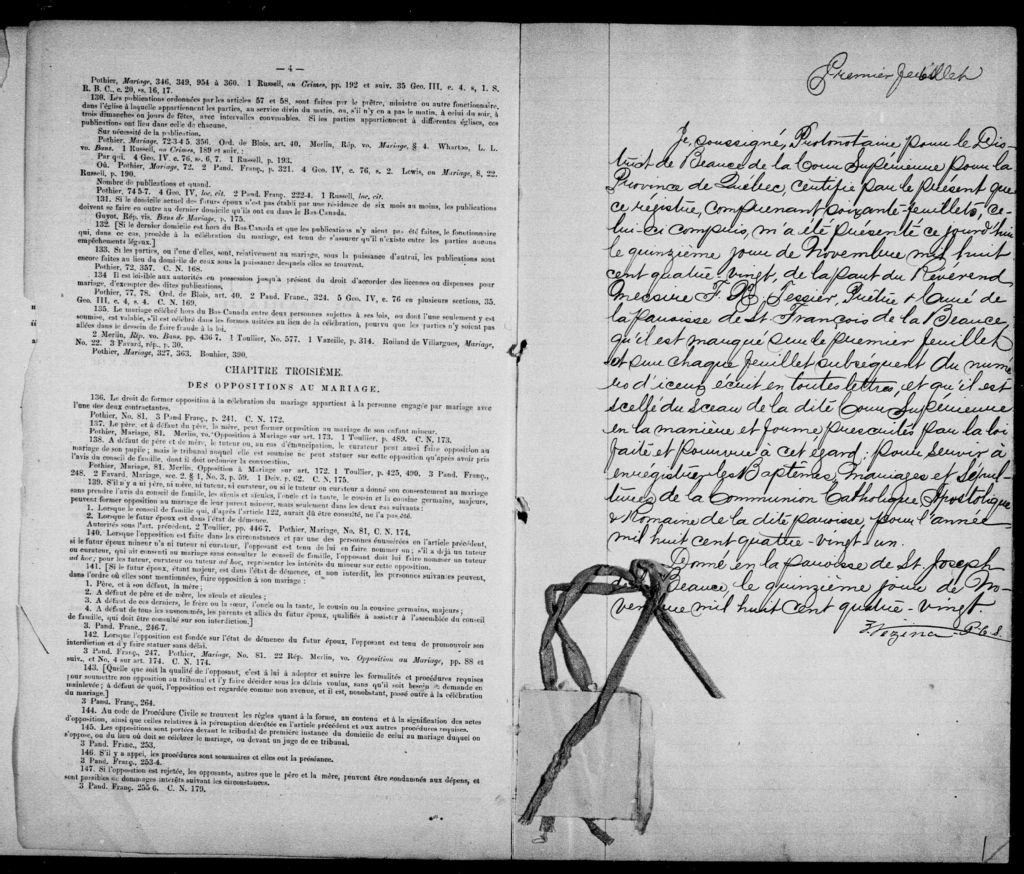 — 4 —
Pothier, Mariage, 346, 349, 954 à 360. 1 Russell, on Crimes, pp. 192 et suiv. 35 Geo. III, c. 4. s, 1. S.
R. B. C., c. 20, ss. 16, 17.
130. Les publications ordonnées par les articles 57 et 58, sont faites par le prêtre, ministre ou autre fonctionnaire,
dans l'église à laquelle appartiennent les parties, au service divin du matin, ou, s'il n'y en a pas le matin, à celui du soir, à
trois dimanches ou jours de fêtes, avec intervalles convenables. Si les parties appartiennent à différentes églises, ces
publications ont lieu dans celle de chacune.
Sur nécessité de la publication.
Pothier, Mariage, 72-3-4 5. 356. Ord. de Blois, art. 40. Merlin, Rép. vo. Mariage, § 4. Wharton, L. L.
vo. Bans. 1 Russell, on Crimes, 189 et suiv. :
Par qui. 4 Geo. IV. c. 76, ss. 6, 7. 1 Russell, p. 193.
Où. Pothier, Mariage, 72. 2 Pand. Franç., p. 321. 4 Geo. IV, c. 76, s. 2. Lewis, on Mariage, 8, 22.
Russell, p. 190.
Nombre de publications et quand.
Pothier, 74 5-7. 4 Geo. IV, loc. cit. 2 Pand. Franç. 222-4. 1 Russell, loc. cit.
131. Si le domicile actuel des futurs époux n'est pas établi par une résidence de six mois au moins, les publications
doivent se faire en outre au dernier domicile qu'ils ont eu dans le Bas-Canada.
Guyot, Rép. vis. Bans de Mariage, p. 175.
132. [Si le dernier domicile est hors du Bas-Canada et que les publications n'y aient pas été faites, le fonctionnaire
qui, dans ce cas, procède à la célébration du mariage, est tenu de s'assurer qu'il n'existe entre les parties aucuns
empêchements légaux.]
133. Si les parties, ou l'une d'elles, sont, relativement au mariage, sous la puissance d'autrui, les publications sont
encore faites au lieu du domicile de ceux sous la puissance desquels elles se trouvent.
Pothier, 72, 357. C. N. 168.
134 Il est loisible aux autorités en possession jusqu'à présent du droit d'accorder des licences ou dispenses pour
mariage, d'exempter des dites publications.
Pothier, 77, 78. Ord. de Blois, art. 40. 2 Pand. Franc., 324. 5 Geo. IV, c. 76 en plusieurs sections, 35.
Geo. III, c. 4, s. 4. C. N. 169.
135. Le mariage célébré hors du Bas-Canada entre deux personnes sujettes à ses lois, ou dont l'une seulement y est
soumise, est valable, s'il est célébré dans les formes usitées au lieu de la célébration, pourvu que les parties n'y soient pas
allées dans le dessein de faire fraude à la loi.
2 Merlin, Rép. vo. Bans, pp. 436-7. 1 Toullier, No. 577. 1 Vazeille, p. 314. Rolland de Villargues, Mariage,
No. 22. 3 Favard, rép., p. 30.
Pothier, Mariage, 327, 363. Bouhier, 390.
CHAPITRE TROISIÈME.
DES OPPOSITIONS AU MARIAGE.
136. Le droit de former opposition à la célébration du mariage appartient à la personne engagée par mariage avec
l'une des deux contractantes.
Pothier, No. 81. 3 Pand Franç., p. 241. C. N. 172.
137. Le père, et à défaut du père, la mère, peut former opposition au mariage de son enfant mineur.
Pothier, Mariage, 81. Merlin, vo. Opposition à Mariage sur art. 173. 1 Toullier, p. 489. C. N. 173.
138. A défaut de père et de mère, le tuteur ou, au cas d'émancipation, le curateur peut aussi faire opposition au
mariage de son pupile ; mais le tribunal auquel elle est soumise ne peut statuer sur cette opposition qu'après avoir pris
l'avis du conseil de famille, dont il doit ordonner la convocation.
Pothier, Mariage, 81. Merlin, Opposition à Mariage sur art. 172. 1 Toullier, p. 425, 490. 3 Pand. Franç.,
248. 2 Favard, Mariage, sec. 2. § 1, No. 3, p. 59. 1 Delv. p. 62. C. N. 175.
139. S'il n'y a ni père, ni mère, ni tuteur, ni curateur, ou si le tuteur ou curateur a donné son consentement au mariage
sans prendre l'avis du conseil de famille, les aïeuls et aïeules, l'oncle et la tante, le cousin et la cousine germains, majeurs,
peuvent former opposition au mariage de leur parent mineur, mais seulement dans les deux cas suivants :
1. Lorsque le conseil de famille qui, d'après l'article 122, aurait dû être consulté, ne l'a pas été.
2. Lorsque le futur époux est dans l'état de démence.
Autorités sous l'art. précédent. 2 Toullier, pp. 446-7. Pothier, Mariage, No. 81, C. N. 174.
140. Lorsque l'opposition est faite dans les circonstances et par une des personnes énumérées en l'article précédent,
si le futur époux mineur n'a ni tuteur ni curateur, l'opposant est tenu de lui en faire nommer un ; s'il a déjà un tuteur
ou curateur, qui ait consenti au mariage sans consulter le conseil de famille, l'opposant doit lui faire nommer un tuteur
ad hoc ; pour les tuteur, curateur ou tuteur ad hoc, représenter les intérêts du mineur sur cette opposition.
141. [Si le futur époux, étant majeur, est dans l'état de démence, et non interdit, les personnes suivantes peuvent,
dans l'ordre où elles sont mentionnées, faire opposition à son mariage :
1. Père, et à son défaut, la mère ;
2. A défaut de père et de mère, les aïeuls et aïeules ;
3. A défaut de ces derniers, le frère ou la sœur, l'oncle ou la tante, le cousin ou la cousine germains, majeurs ;
4. A défaut de tous les susnommés, les parents et alliés du futur époux, qualifiés à assister à l'assemblée du conseil
de famille, qui doit être consulté sur son interdiction.]
3 Pand. Franç., 246-7.
142. Lorsque l'opposition est fondée sur l'état de démence du futur époux, l'opposant est tenu de promouvoir son
interdiction et d'y faire statuer sans délai.
3 Pand. Franç., 247. Pothier, Mariage, No. 81. 22 Rép. Merlin, vo. Opposition au Mariage, pp. 88 et
suiv., et No. 4 sur art. 174. C. N. 174.
143. [Quelle que soit la qualité de l'opposant, c'est à lui à adopter et suivre les formalités et procédures requises
pour soumettre son opposition au tribunal et l'y faire décider sous les délais voulus, sans qu'il soit besoin de demande en
mainlevée ; à défaut de quoi, l'opposition est regardée comme non avenue, et il est, nonobstant, passé outre à la célébration
du mariage.]
3 Pand. Franç., 264.
144. Au code de Procédure Civile se trouvent les règles quant à la forme, au contenu et à la signification des actes
d'opposition, ainsi que celles relatives à la péremption décrétée en l'article précédent et aux autres procédures requises.
145. Les oppositions sont portées devant le tribunal de première instance du domicile de celui au mariage duquel on
s'oppose, ou du lieu où doit se célébrer le mariage, ou devant un juge de ce tribunal.
3 Pand. Franc., 253.
146. S'il y a appel, les procédures sont sommaires et elles ont la préséance.
3 Pand. Franç., 253-4.
147. Si l'opposition est rejetée, les opposants, autres que le père et la mère, peuvent être condamnés aux dépens, et
sont passibles de dommages intérêts suivant les circonstances.
3 Pand. Franç. 255 6. C. N. 179.
Premier feuillet
Je, soussigné, Protonotaire pour le Dis-
trict de Beauce de la Cour Supérieure pour la
Province de Québec, certifie par le présent que
ce registre, comprenant soixante feuillets, ce-
lui-ci compris, m'a été présenté ce jourd'hui
le quinzième jour de Novembre mil huit
cent quatre-vingt, de la part du Révérend
Messire F. X. Tessier, Prêtre & Curé de
la paroisse de St. François de la Beauce,
qu'il est marqué sur le premier feuillet
et sur chaque feuillet subséquent du numé
ro d'iceux écrit en toutes lettres, et qu'il est
scellé du sceau de la dite Cour Supérieure
en la manière et forme prescrites par la loi
faite et pourvue à cet égard ; Pour servir à
enregistrer les Baptêmes, Mariages et sépul-
tures de la Communion Catholique, Apostolique
& Romaine de la dite paroisse, pour l'année
mil huit cent quatre-vingt-un.
Donné en la paroisse de St. Joseph
Beauce, le quinzième jour de No-
vembre mil huit cent quatre-vingt.
Vézina P.C.S.